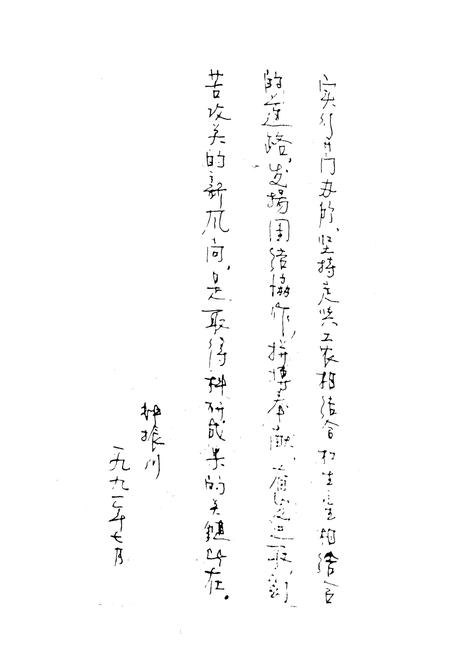 实行开门办所，坚持走与工农相结合和生产相结合
的道路，发扬团结协作，拼搏奉献，省进取，刻
苦攻关的新风向，是取得科研成果的关键所在。
振川
一九九二年七月